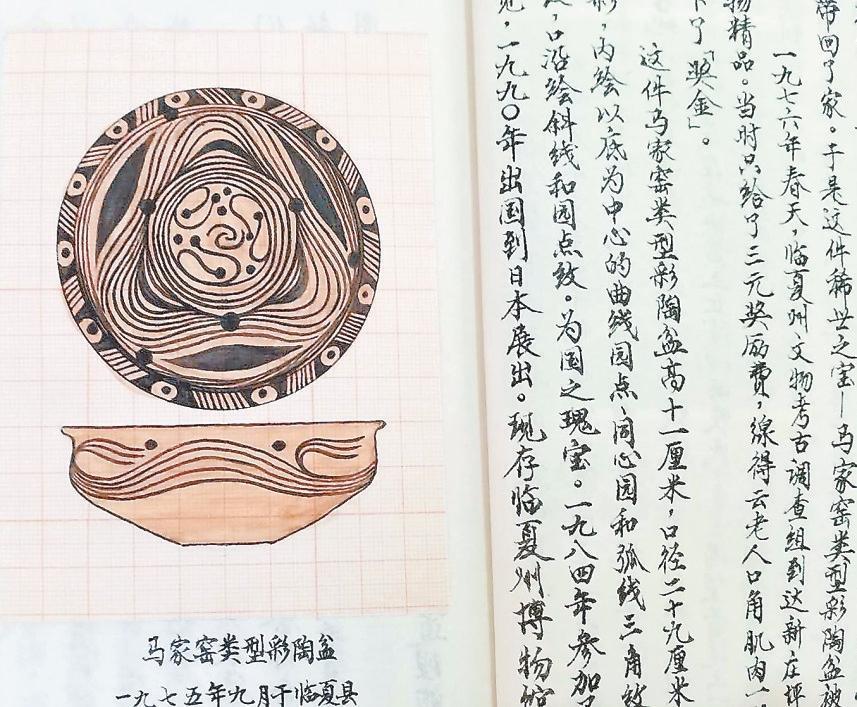 马家窑类型彩陶盆
一九七五年九月于临夏县
带回了家。于是这件稀世之宝—马家窑类型彩陶盆被
一九七六年春天，临夏州文物考古调查组到达新庄坪
物精品。当时只给了三元奖励费，线得云老人口角肌肉一
下了「奖金」。
这件马家窑类型彩陶盆高十一厘米，口径二十九厘米
彩，内绘以底为中心的曲线园点、同心园和弧线三角纹
，口沿绘斜线和园点纹。为国之瑰宝。一九八四年参加
见，一九九〇年出国到日本展出。现存临夏州博物馆